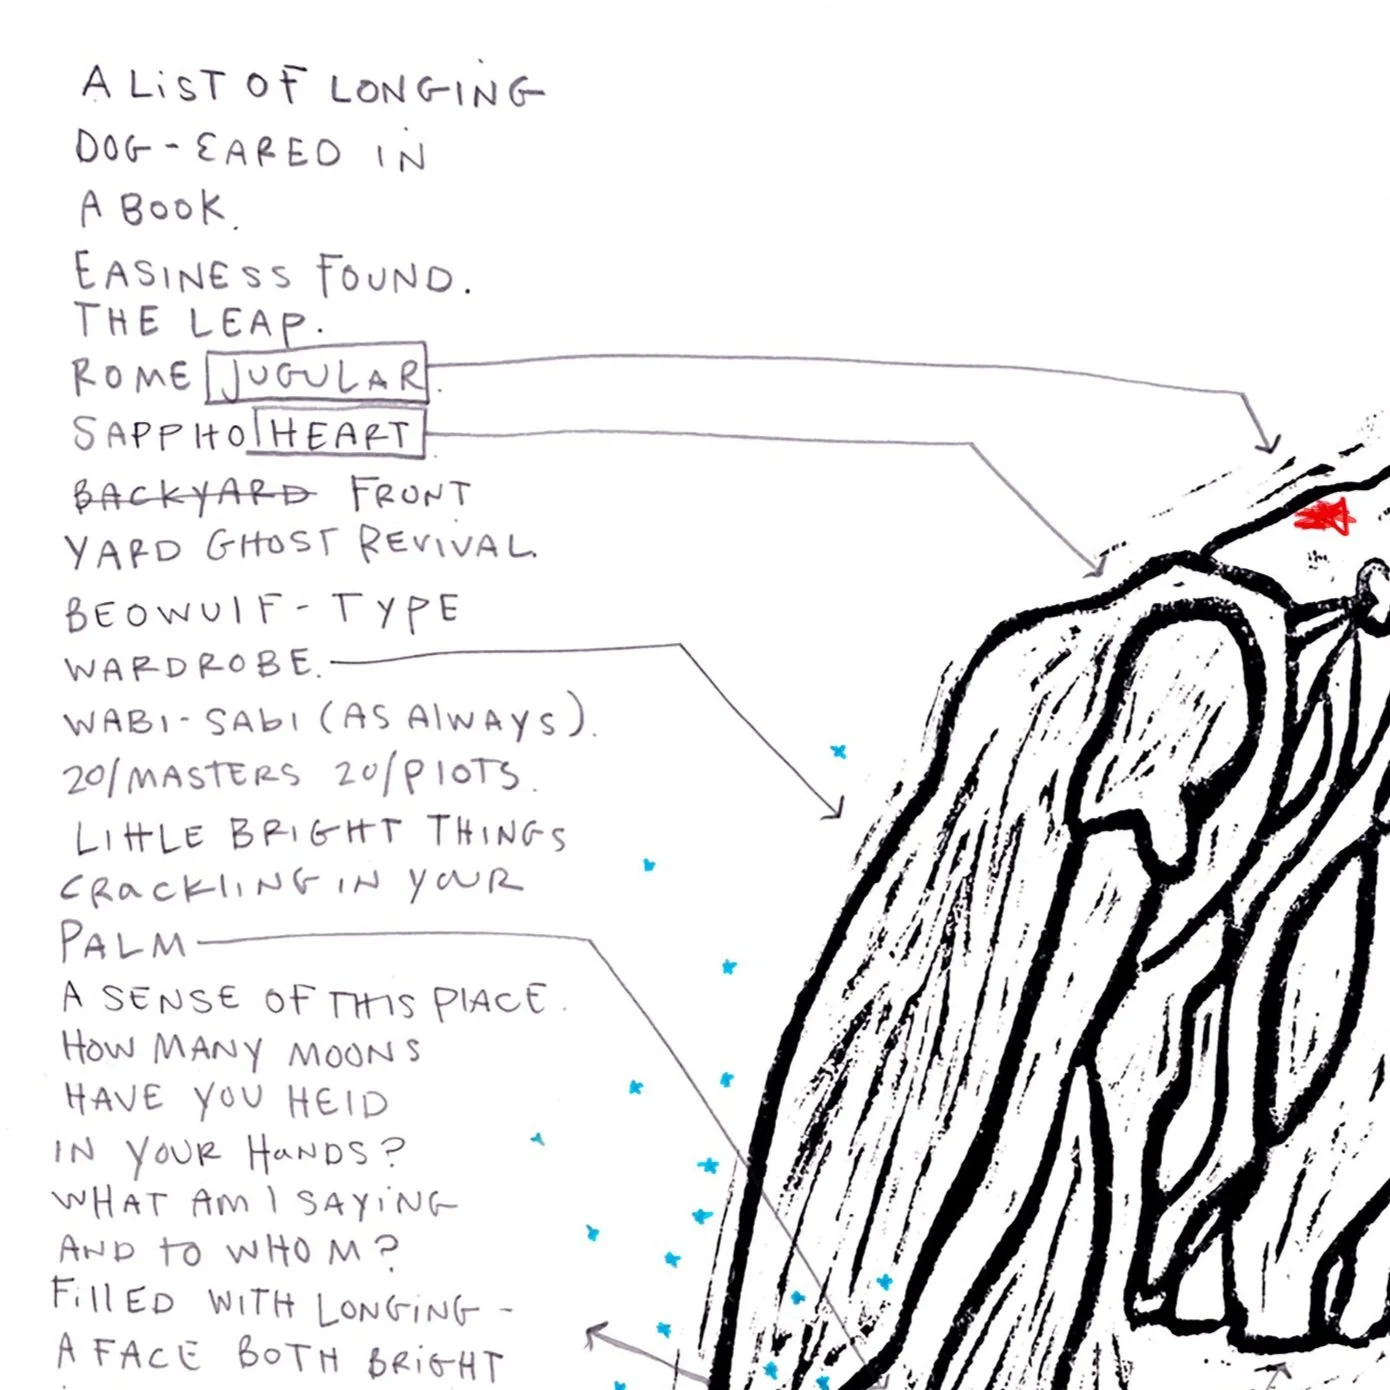 A LIST OF LONGING
DOG-EARED IN
A BOOK.
EASINESS FOUND.
THE LEAP.
ROME JUGULAR.
SAPPHO HEART
BACKYARD FRONT
YARD GHOST REVIVAL.
BEOWULF-TYPE
WARDROBE.
WABI-SABI (AS ALWAYS).
20/MASTERS 20/PLOTS.
LITTLE BRIGHT THINGS
CRACKLING IN YOUR
PALM
A SENSE OF THIS PLACE.
HOW MANY MOONS
HAVE YOU HELD
IN YOUR HANDS?
WHAT AM I SAYING
AND TO WHOM?
FILLED WITH LONGING -
A FACE BOTH BRIGHT